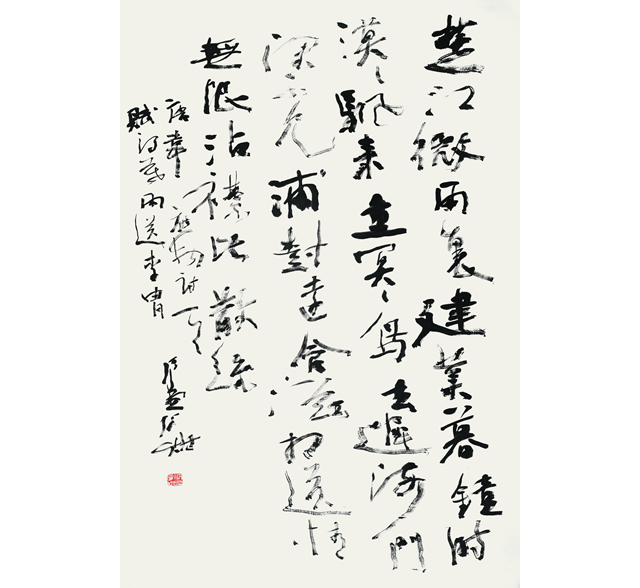 楚江微雨裏建業暮鐘時
漠〻颿来重冥〻鳥去遲海門
深不見浦樹遠含滋相送情
無限沾襟比散絲
唐韋應物詩一首
賦得暮雨送李胄